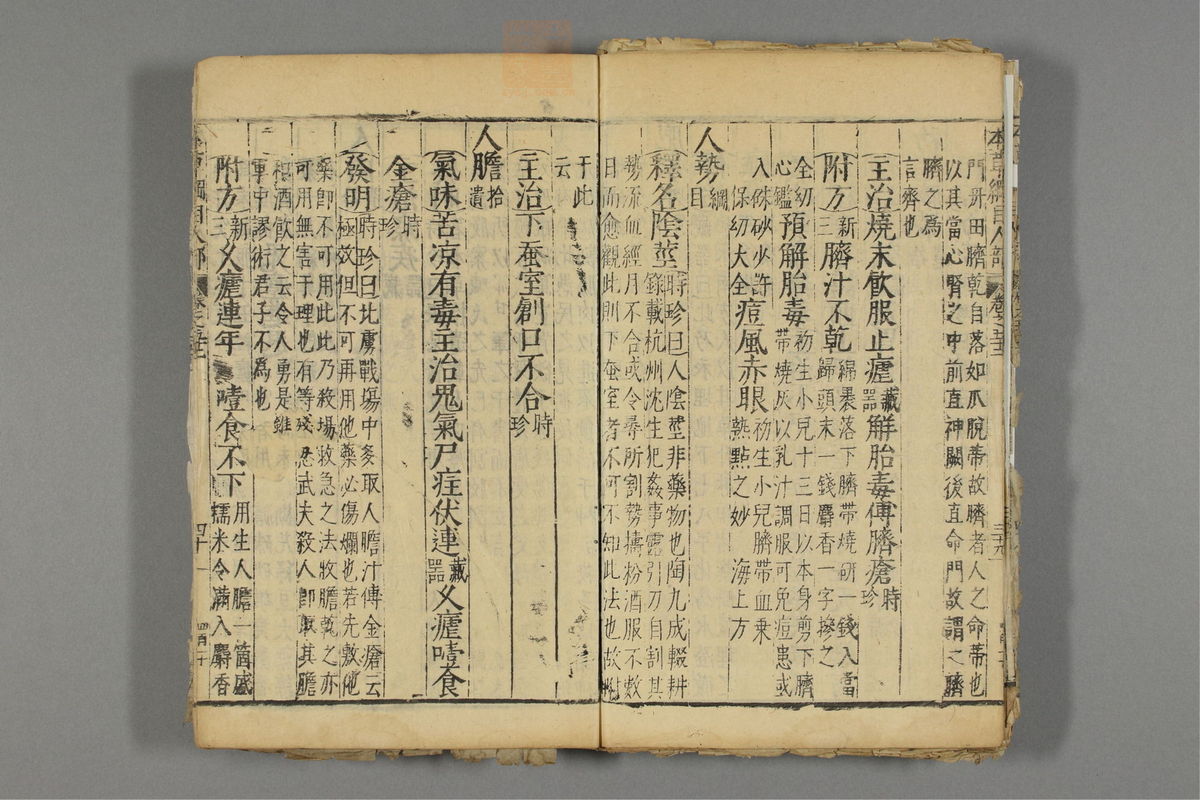 門哥田臍乾自落如爪脫蒂故臍者人之命蒂也
以其當心腎之中前直神闕後直命門故謂之臍
臍之爲
言齊也
主治燒末飲服止瘧藏器解胎毒傅臍瘡時珍
附方新三臍汁不乾綿裹落下臍帶燒研一錢入當
歸頭末一錢麝香一字摻之
全幼心鑑預解胎毒初生小兒十三日以本身剪下臍
帶燒灰以乳汁調服可免痘患或
入硃砂少許
保幼大全痘風赤眼初生小兒臍帶血乘
熱點之妙 海上方
人勢綱目
釋名陰莖時珍曰人陰莖非藥物也陶九成輟耕
錄載杭州沈生犯姦事露引刀自割其
勢流血經月不合或令尋所割勢擣粉酒服不數
日而愈觀此則下蚕室者不可不知此法也故附
于此
云
主治下蚕室創口不合時珍
人膽拾遺
氣味苦凉有毒主治鬼氣尸疰伏連藏器乂瘧噎食
金瘡時珍
發明時珍曰北虜戰場中多取人膽汁傅金瘡云
極效但不可再用他藥必傷爛也若先敷他
藥即不可用此此乃殺場救急之法收膽乾之亦
可用無害于理也有等殘忍武夫殺人即取其膽
和酒飲之云令人勇是雖
軍中謬術君子不爲也
附方新三乂瘧連年 噎食不下用生人膽一箇盛
糯米令滿入麝香